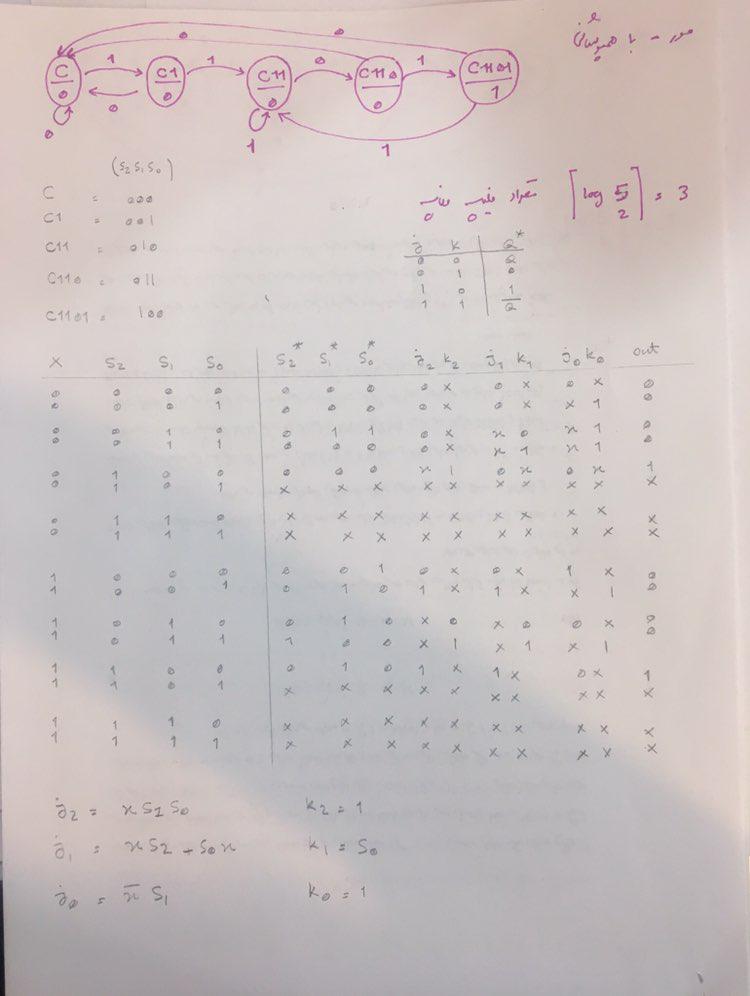 صورت با همپوشانی
0 0
C 1 C1 1 C11 0 C110 1 C1101
0 0 0 0 0 1
0 1 1
(S2 S1 S0)
C = 000
C1 = 001
C11 = 010
C110 = 011
C1101 = 100
تعداد فلیپ فلاپ ⌈log 5 2⌉ = 3
J K Q*
0 0 Q
0 1 0
1 0 1
1 1 Q̅
X S2 S1 S0 S2* S1* S0* J2 K2 J1 K1 J0 K0 out
0 0 0 0 0 0 0 0 x 0 x 0 x 0
0 0 0 1 0 0 0 0 x 0 x x 1 0
0 0 1 0 0 1 1 0 x x 0 x 1 0
0 0 1 1 0 0 0 0 x x 1 x 1 0
0 1 0 0 0 0 0 x 1 0 x 0 x 1
0 1 0 1 x x x x x x x x x x
0 1 1 0 x x x x x x x x x x
0 1 1 1 x x x x x x x x x x
1 0 0 0 0 0 1 0 x 0 x 1 x 0
1 0 0 1 0 1 0 1 x 1 x x 1 0
1 0 1 0 0 1 0 x 0 x 0 0 x 0
1 0 1 1 1 0 0 x 1 x 1 x 1 0
1 1 0 0 0 1 0 1 x 1 x 0 x 1
1 1 0 1 x x x x x x x x x x
1 1 1 0 x x x x x x x x x x
1 1 1 1 x x x x x x x x x x
J2 = x S1 S0 K2 = 1
J1 = x S2 + S0 x K1 = S0
J0 = x̅ S1 K0 = 1